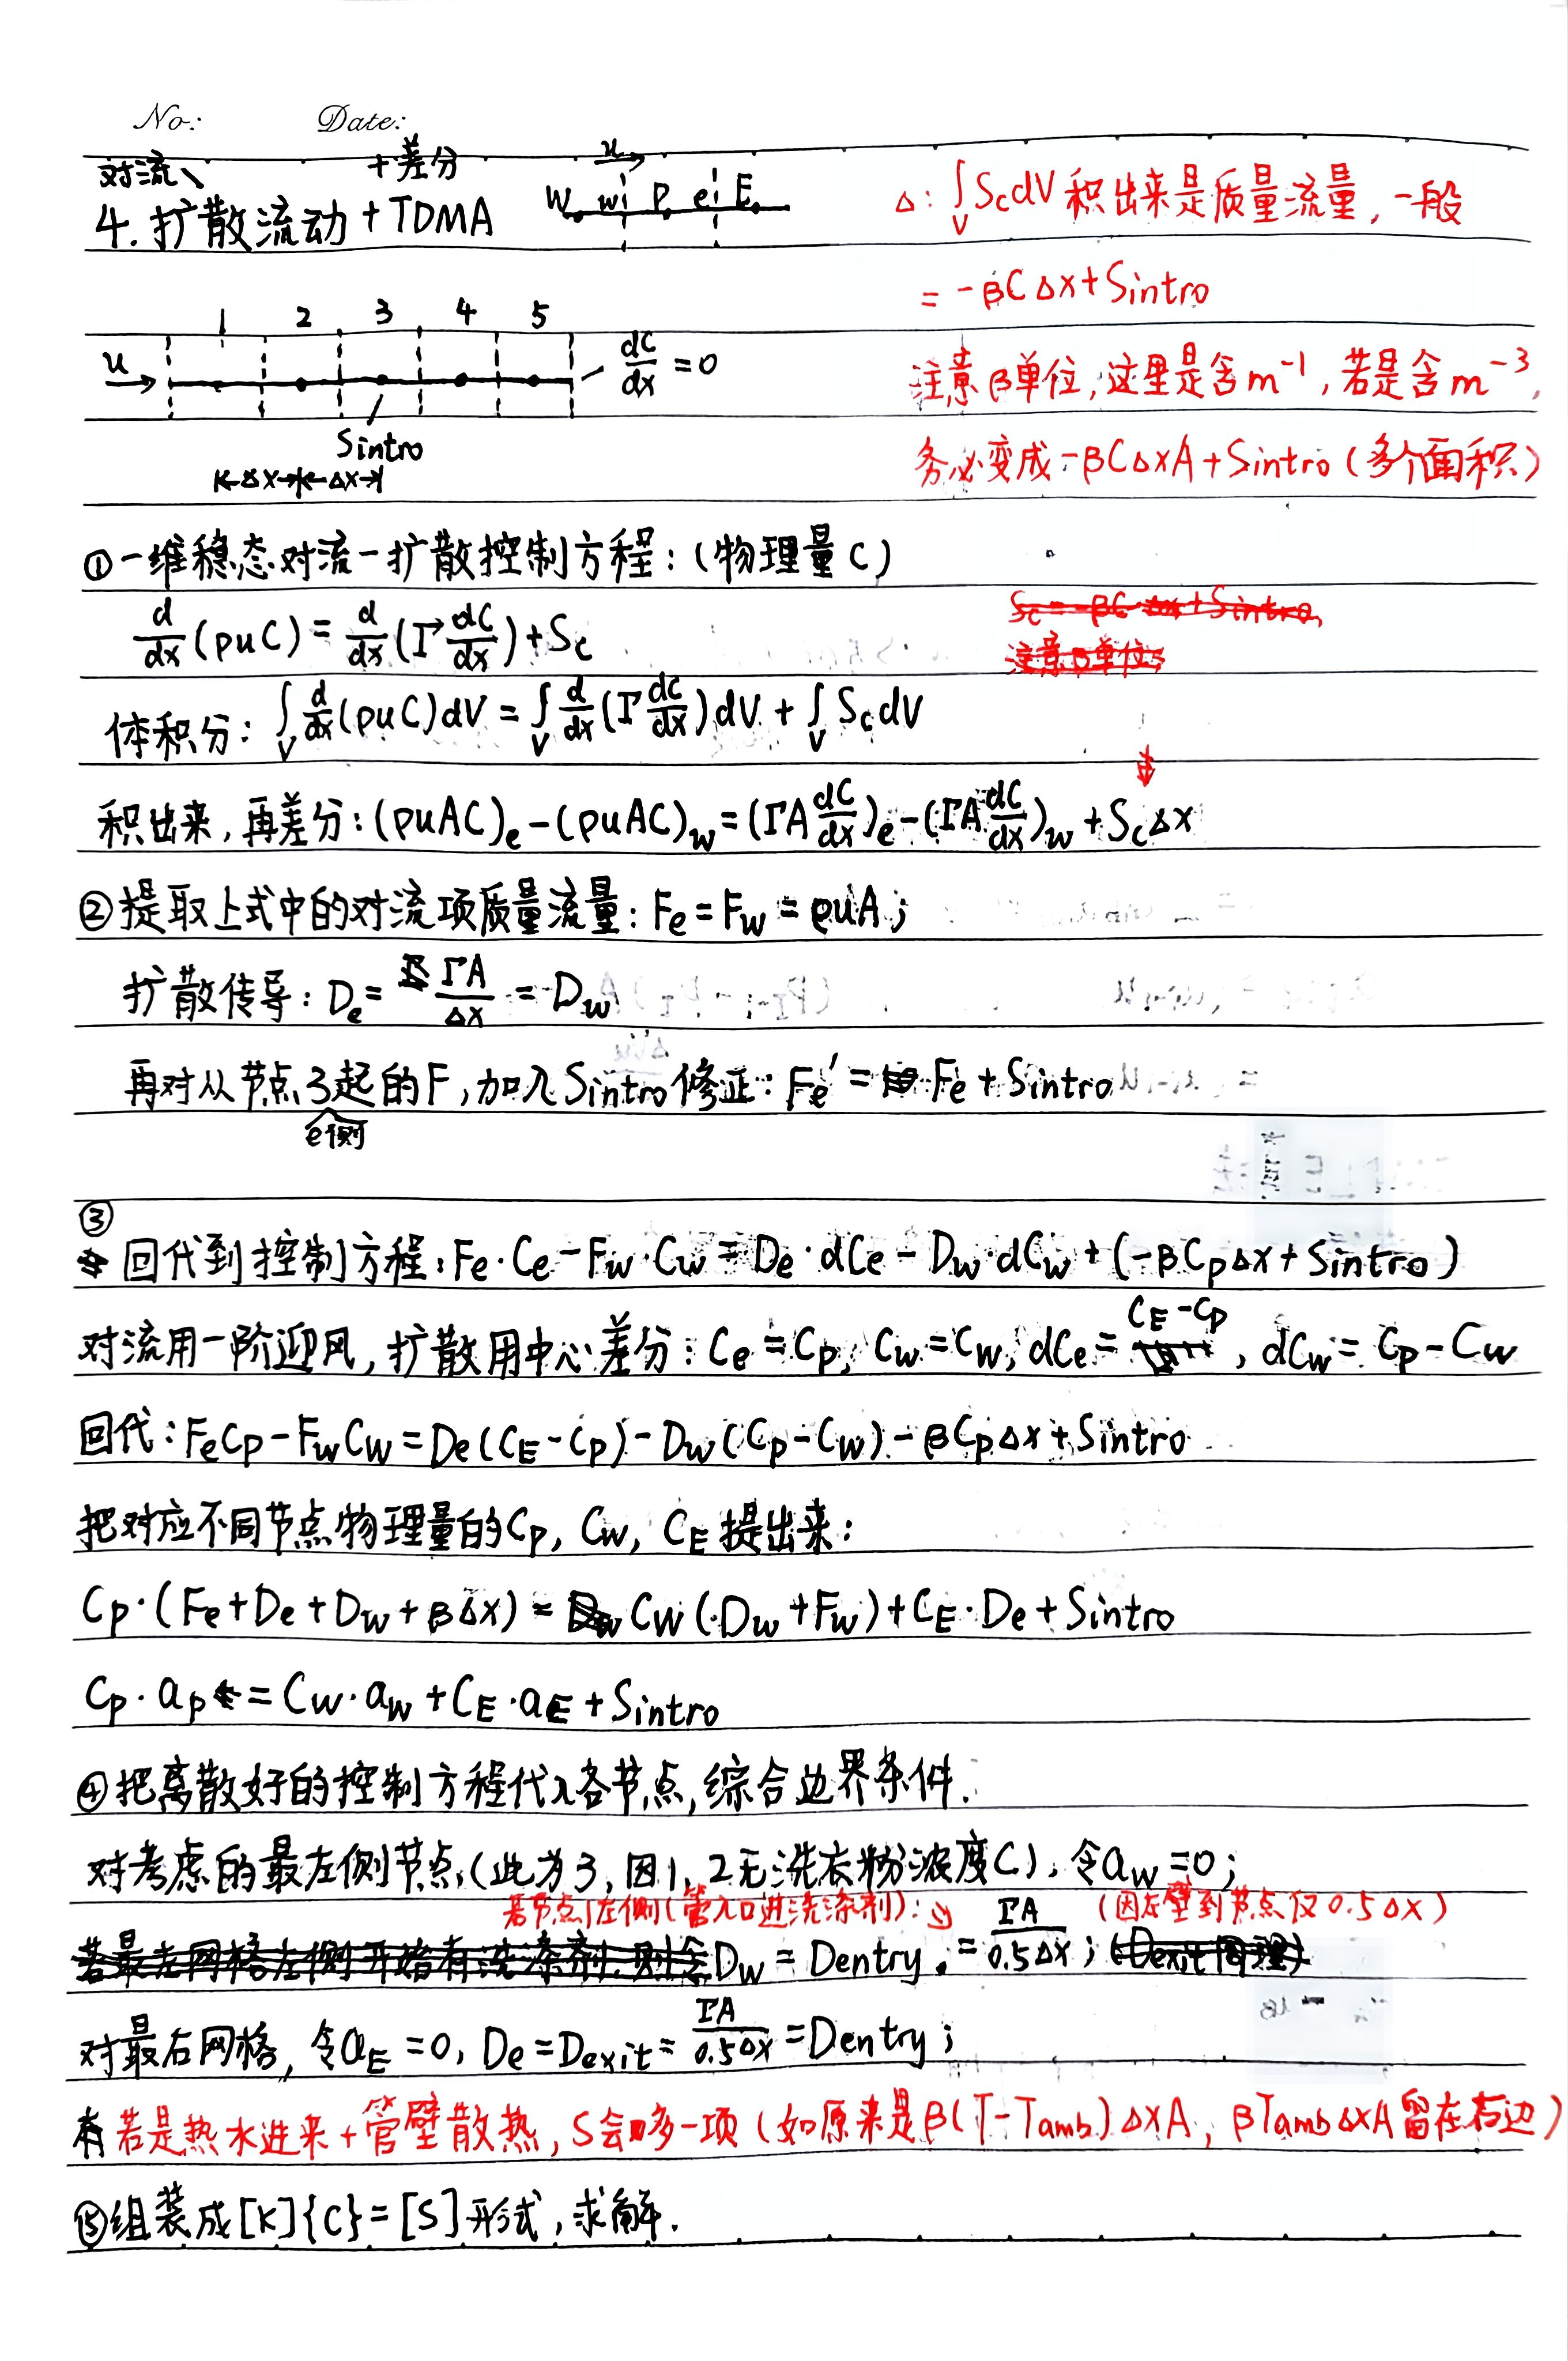 No: Date:
对流、 +差分
4. 扩散流动 + TDMA
u
W w P e E
△: ∫_V ScdV 积出来是质量流量, 一般
= -βC△x+Sintro
注意β单位, 这里是含m⁻¹, 若是含m⁻³,
务必变成 -βC△xA+Sintro (多个面积)
1 2 3 4 5
u
dC/dx = 0
Sintro
△x △x
①一维稳态对流-扩散控制方程: (物理量C)
d/dx (ρuC) = d/dx (Γ dC/dx) + Sc
体积分: ∫_V d/dx (ρuC)dV = ∫_V d/dx (Γ dC/dx)dV + ∫_V ScdV
积出来, 再差分: (ρuAC)e - (ρuAC)w = (ΓA dC/dx)e - (ΓA dC/dx)w + Sc△x
②提取上式中的对流项质量流量: Fe = Fw = ρuA;
扩散传导: De = ΓA/△x = Dw
再对从节点3起的F, 加入Sintro修正: Fe' = Fe + Sintro
e侧
③
回代到控制方程: Fe·Ce - Fw·Cw = De·dCe - Dw·dCw + (-βCp△x + Sintro)
对流用一阶迎风, 扩散用中心差分: Ce = Cp, Cw = Cw, dCe = CE-Cp, dCw = Cp-Cw
回代: FeCp - FwCw = De(CE-Cp) - Dw(Cp-Cw) - βCp△x + Sintro
把对应不同节点物理量的Cp, Cw, CE提出来:
Cp·(Fe+De+Dw+β△x) = Cw(Dw+Fw)+CE·De+Sintro
Cp·ap = Cw·aw + CE·aE + Sintro
④把离散好的控制方程代入各节点, 综合边界条件.
对考虑的最左侧节点(此为3, 因1, 2无洗衣粉浓度C), 令aw=0;
若节点1左侧(管入口进洗涤剂): (因左壁到节点仅0.5△x)
Dw = Dentry = ΓA/0.5△x;
对最右网格, 令aE=0, De = Dexit = ΓA/0.5△x = Dentry;
若是热水进来+管壁散热, S会多一项(如原来是β(T-Tamb)△xA, βTamb△xA留在右边)
⑤组装成[K]{C}=[S]形式, 求解.